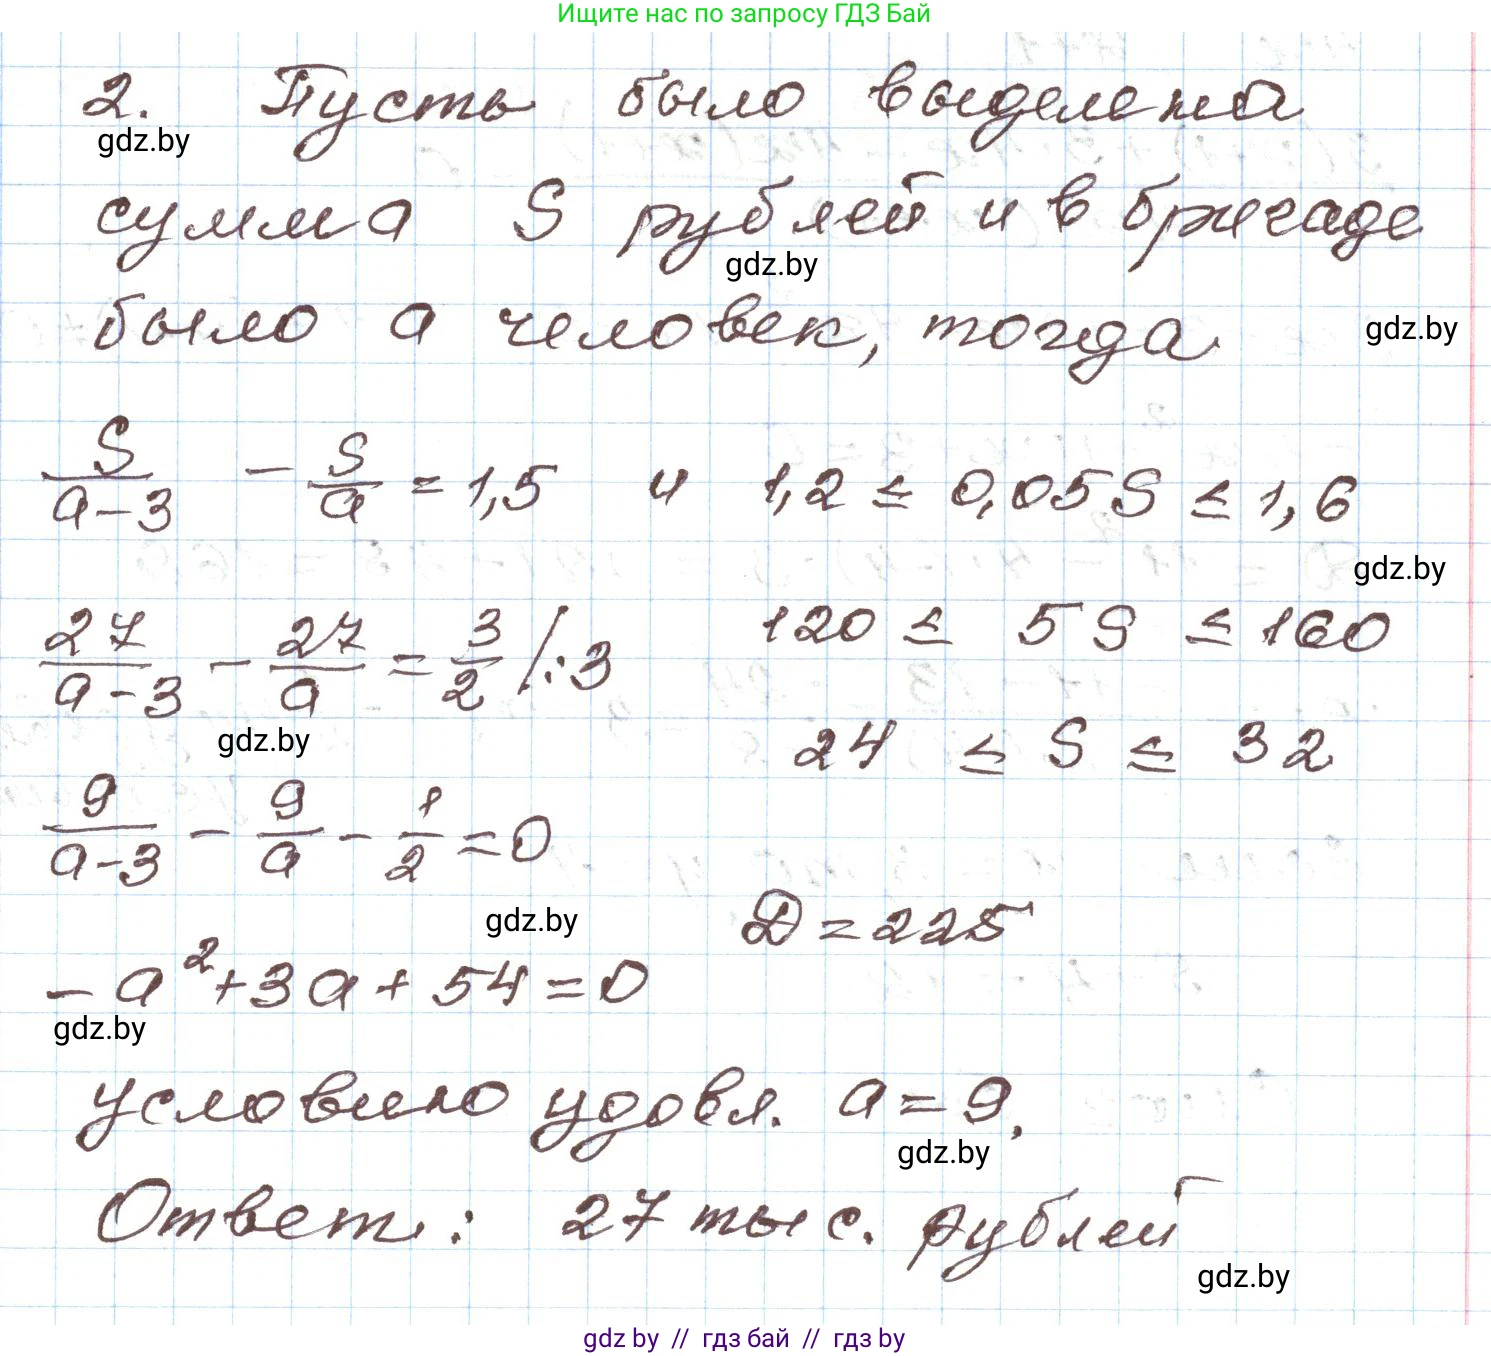 Ищите нас по запросу ГДЗ Бай
2. Пусть было выделена
gdz.by
сумма S рублей и в бригаде
gdz.by
было a человек, тогда
gdz.by
S/(a-3) - S/a = 1,5 и 1,2 ≤ 0,05S ≤ 1,6
gdz.by
27/(a-3) - 27/a = 3/2 /:3 120 ≤ 5S ≤ 160
gdz.by
24 ≤ S ≤ 32
9/(a-3) - 9/a - 1/2 = 0
gdz.by
D = 225
-a² + 3a + 54 = 0
gdz.by
условию удовл. a = 9.
gdz.by
Ответ: 27 тыс. рублей
gdz.by
gdz by // гдз бай // гдз by